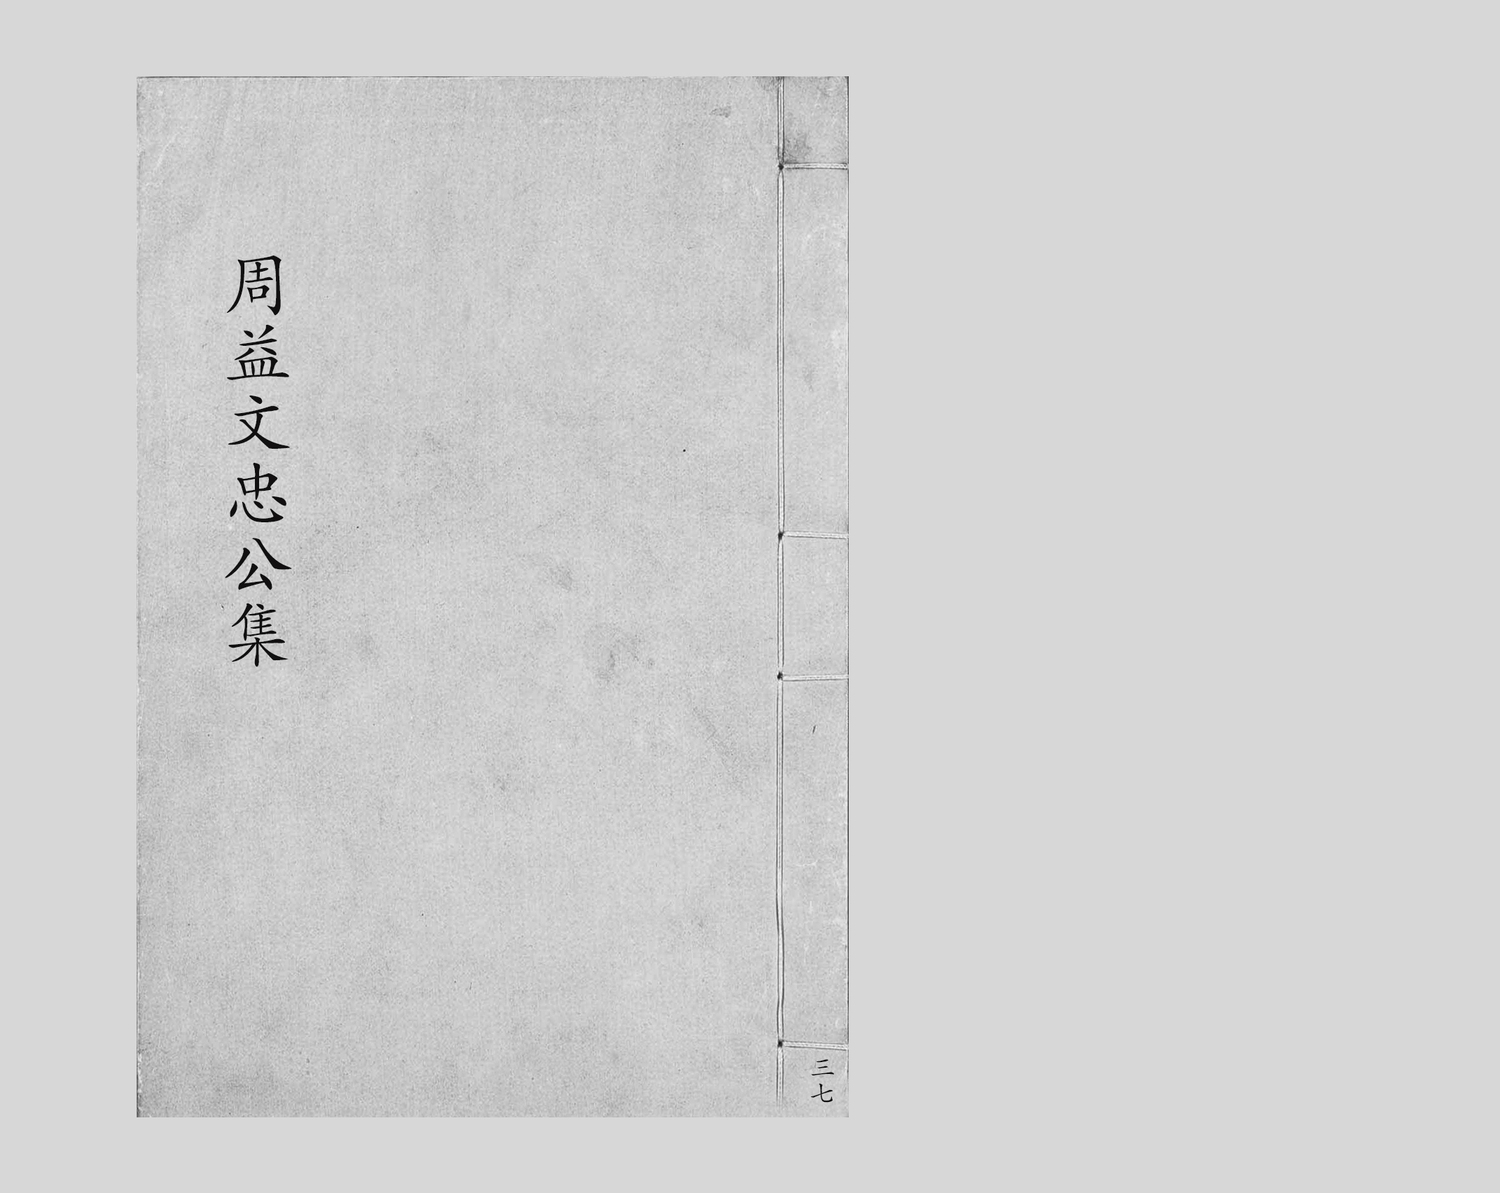 周益文忠公集
三七